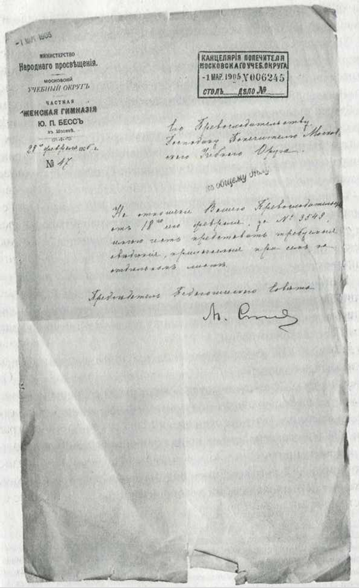 -1 МАР. 1905
МИНИСТЕРСТВО
Народнаго просвѣщенія.
МОСКОВСКІЙ
УЧЕБНЫЙ ОКРУГЪ
ЧАСТНАЯ
ЖЕНСКАЯ ГИМНАЗІЯ
Ю. П. БЕССЪ
въ Москвѣ.
28го февраля 1905 г.
№ 47
КАНЦЕЛЯРІЯ ПОПЕЧИТЕЛЯ
МОСКОВСКАГО УЧЕБ. ОКРУГА
-1 МАР. 1905 006245
СТОЛЪ ДѢЛО №
Его Превосходительству
Господину Попечителю Москов-
скаго Учебнаго Округа.
по общему
На отношеніе Вашего Превосходительства
отъ 18го февраля, за № 3548
имѣю честь представить требуемыя
свѣдѣнія, приложенныя при семъ на
отдѣльномъ листѣ.
Предсѣдатель Педагогическаго Совѣта